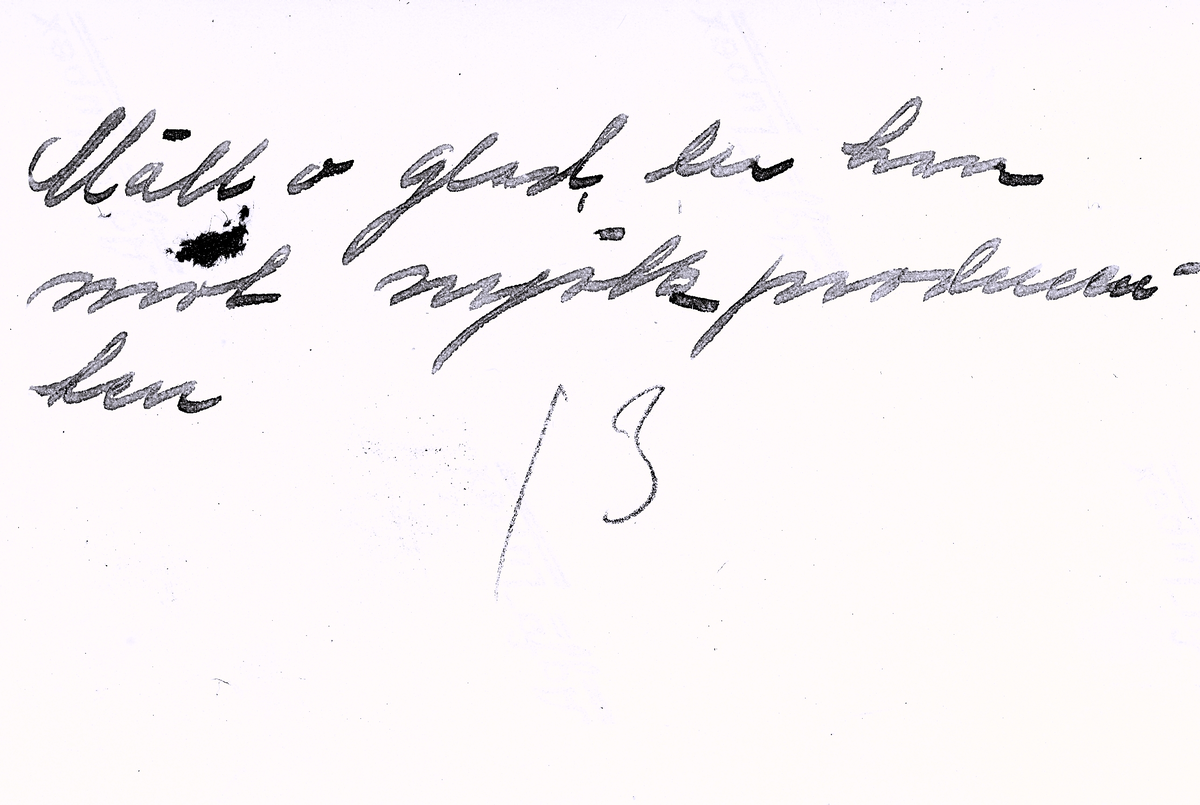 Mätt o glad, ler hon
mot mjölkproducen-
ten
13